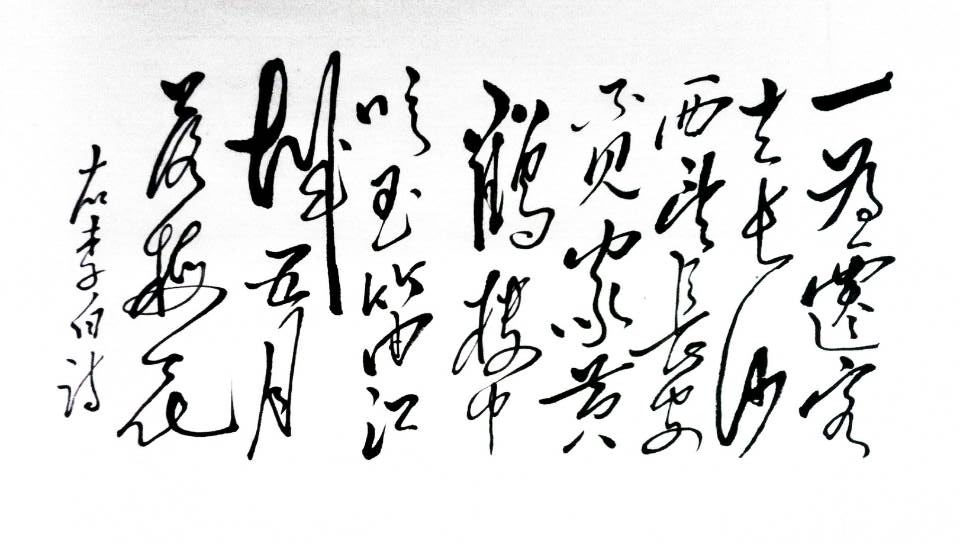 一为遷客
去長沙
西望長安
不见家黄
鹤楼中
吹玉笛江
城五月
落梅花
右李白詩